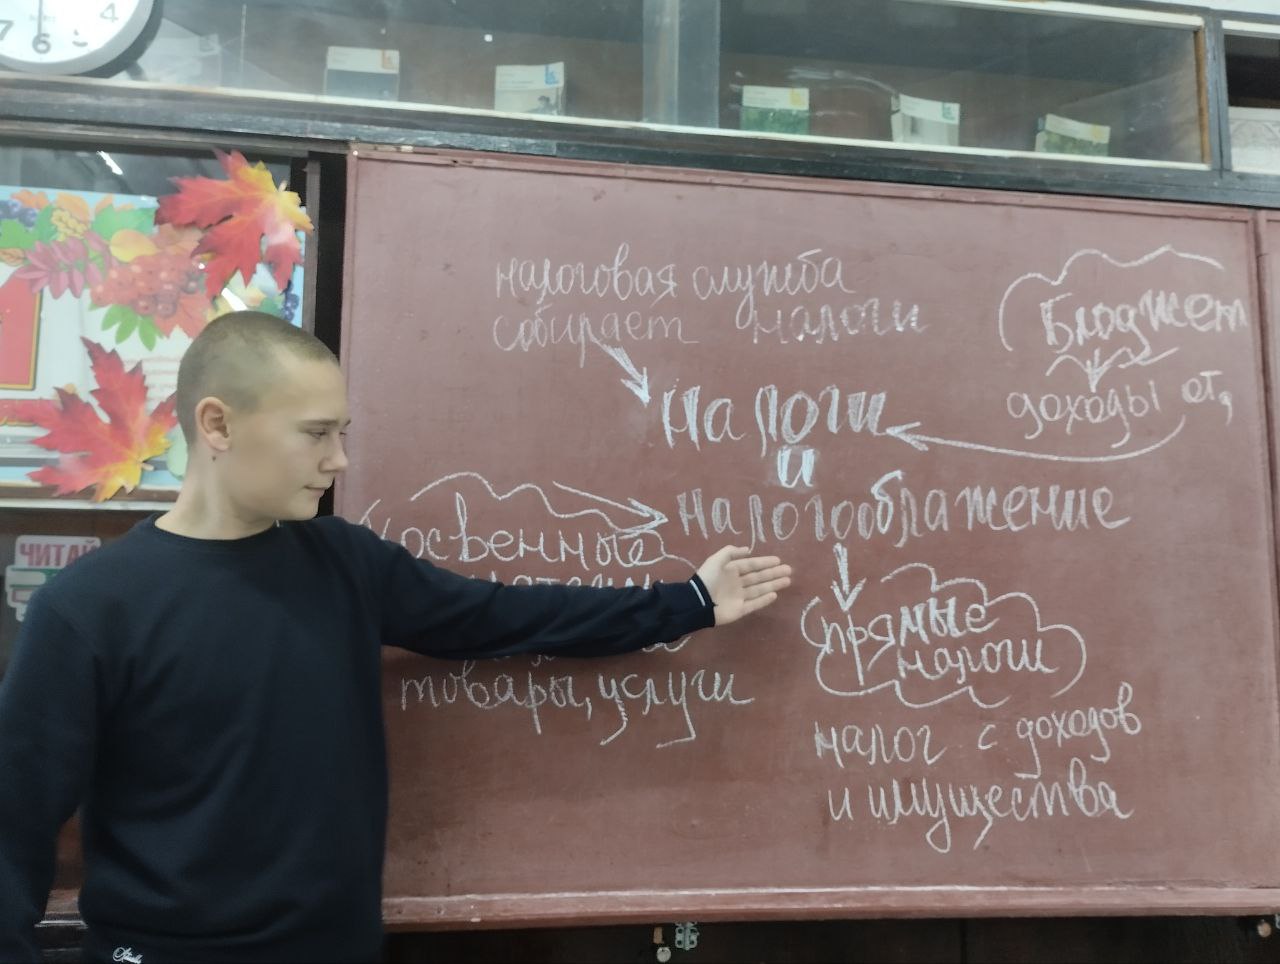 4
7
6
налоговая служба
собирает налоги
Бюджет
доходы от,
Налоги
и
налогооблажение
Косвенные
товары, услуги
прямые
налоги
налог с доходов
и имущества
ЧИТАЙ